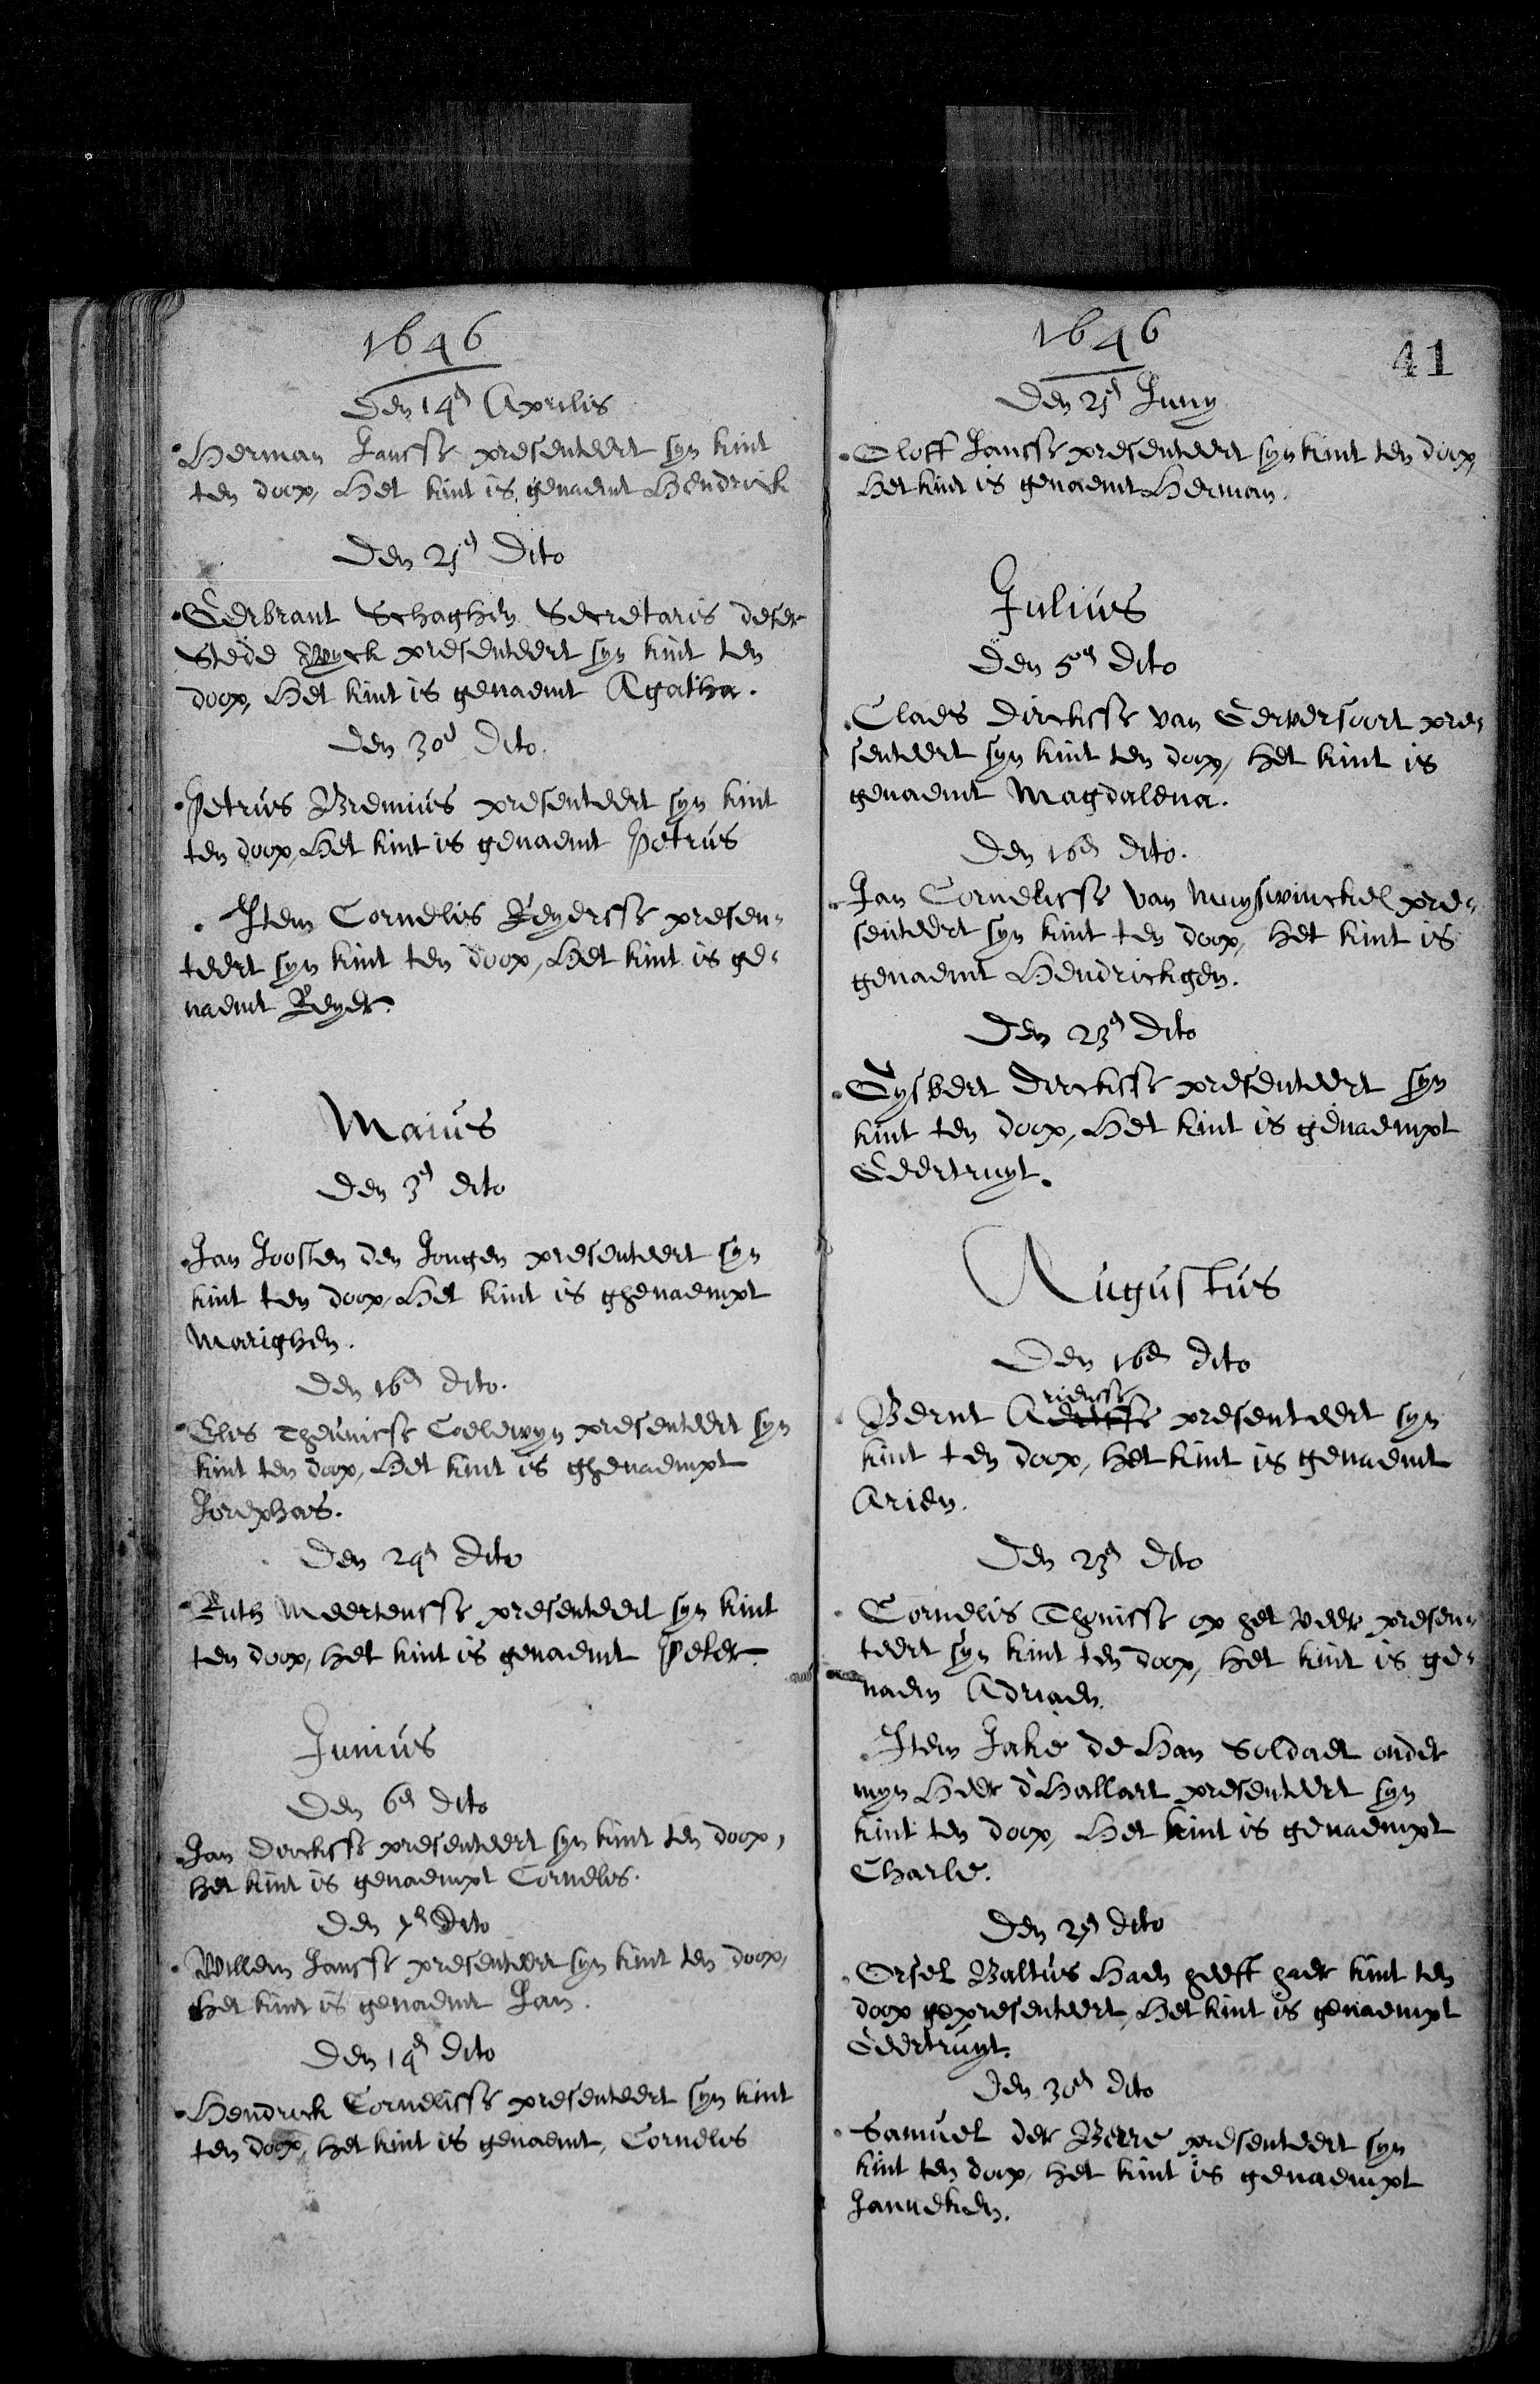 1646
Den 14en Aprilis
Herman Jansse presenteert syn kint
ten doop, Het kint is genaemt Hendrick
Den 25en Dito
Gerbrant Schaghen Secretaris deser
Stede Wyck presenteert syn kint ten
doop, Het kint is genaemt Agatha.
Den 30en Dito.
Petrus Bremius presenteert syn kint
ten doop, Het kint is genaemt Petrus
Item Cornelis Reyersse presen-
teert syn kint ten doop, Het kint is ge-
naemt Reyer.
Maius
Den 3en dito
Jan Joosten den Jongen presenteert syn
kint ten doop, Het kint is ghenaempt
Marighen.
Den 16en dito.
Elis Theunisse Coelewyn presenteert syn
kint ten doop, Het kint is ghenaempt
Josephas.
Den 24en Dito
Ruth Meertensse presenteert syn kint
ten doop, het kint is genaemt Peter.
Junius
Den 6en dito
Jan Dircksse presenteert syn kint ten doop,
het kint is genaempt Cornelis.
Den 7en Dito
Willem Jansse presenteert syn kint ten doop,
Het kint is genaemt Jan.
Den 14en dito
Hendrick Cornelisse presenteert syn kint
ten doop, het kint is genaemt, Cornelis
1646
41
Den 25en Juny
Oloff Jansse presenteert syn kint ten doop,
Het kint is genaemt Herman.
Julius
Den 5en dito
Claes Dircksse van Gerversoort pre-
senteert syn kint ten doop, het kint is
genaemt Magdalena.
Den 16en dito.
Jan Cornelisse van Muyswinckel pre-
senteert syn kint ten doop, het kint is
genaemt Hendrickgen.
Den 23en dito
Gysbert Dircksse presenteert syn
kint ten doop, Het kint is genaempt
Geertruyt.
Augustus
Den 16en dito
riensse
Bernt Aertsse presenteert syn
kint ten doop, het kint is genaemt
Arien.
Den 23en dito
Cornelis Thonisse op het veer presen-
teert syn kint ten doop, het kint is ge-
naem Adriaen.
Item Jake de Han Soldaet onder
myn Heer d'Hallart presenteert syn
kint ten doop, Het kint is genaempt
Charle.
Den 27en dito
Orsel Baltus Haen heeft haer kint ten
doop gepresenteert, Het kint is genaempt
Geertruyt.
Den 30en dito
Samuel der Berre presenteert syn
kint ten doop, het kint is genaempt
Janneken.